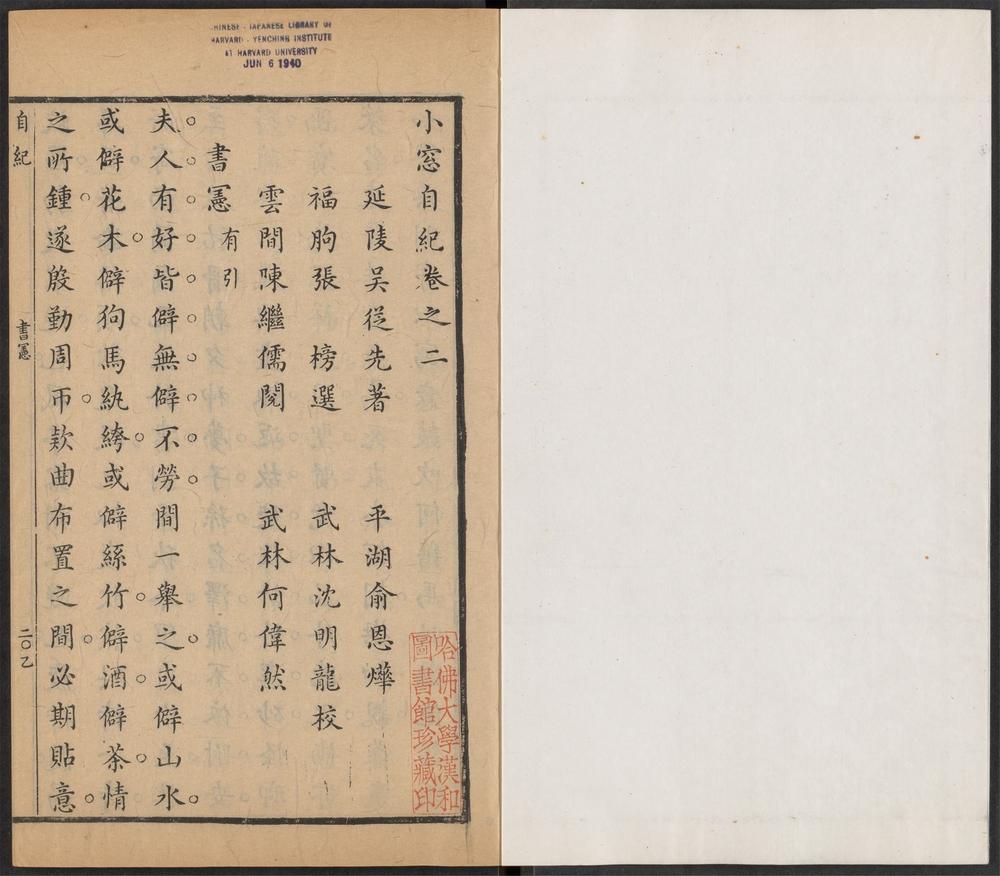 CHINESE - JAPANESE LIBRARY OF
HARVARD - YENCHING INSTITUTE
AT HARVARD UNIVERSITY
JUN 6 1940
小窓自紀卷之二
延陵吳從先著 平湖俞恩燁
福朐張 榜選 武林沈明龍校
雲間陳繼儒閱 武林何偉然
書憲有引
夫人有好皆僻無僻不勞間一舉之或僻山水
或僻花木僻狗馬紈綺或僻絲竹僻酒僻茶情
之所鍾遂殷勤周帀欵曲布置之間必期貼意
自紀 書憲 二〇乙
哈佛大學漢和
圖書館珍藏印